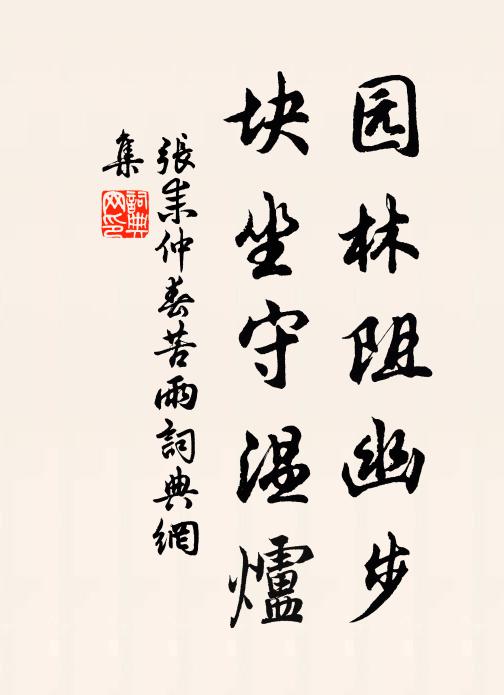 园林阻幽步
块坐守温爐
張耒仲春苦雨詞典網
集
詞典
网印